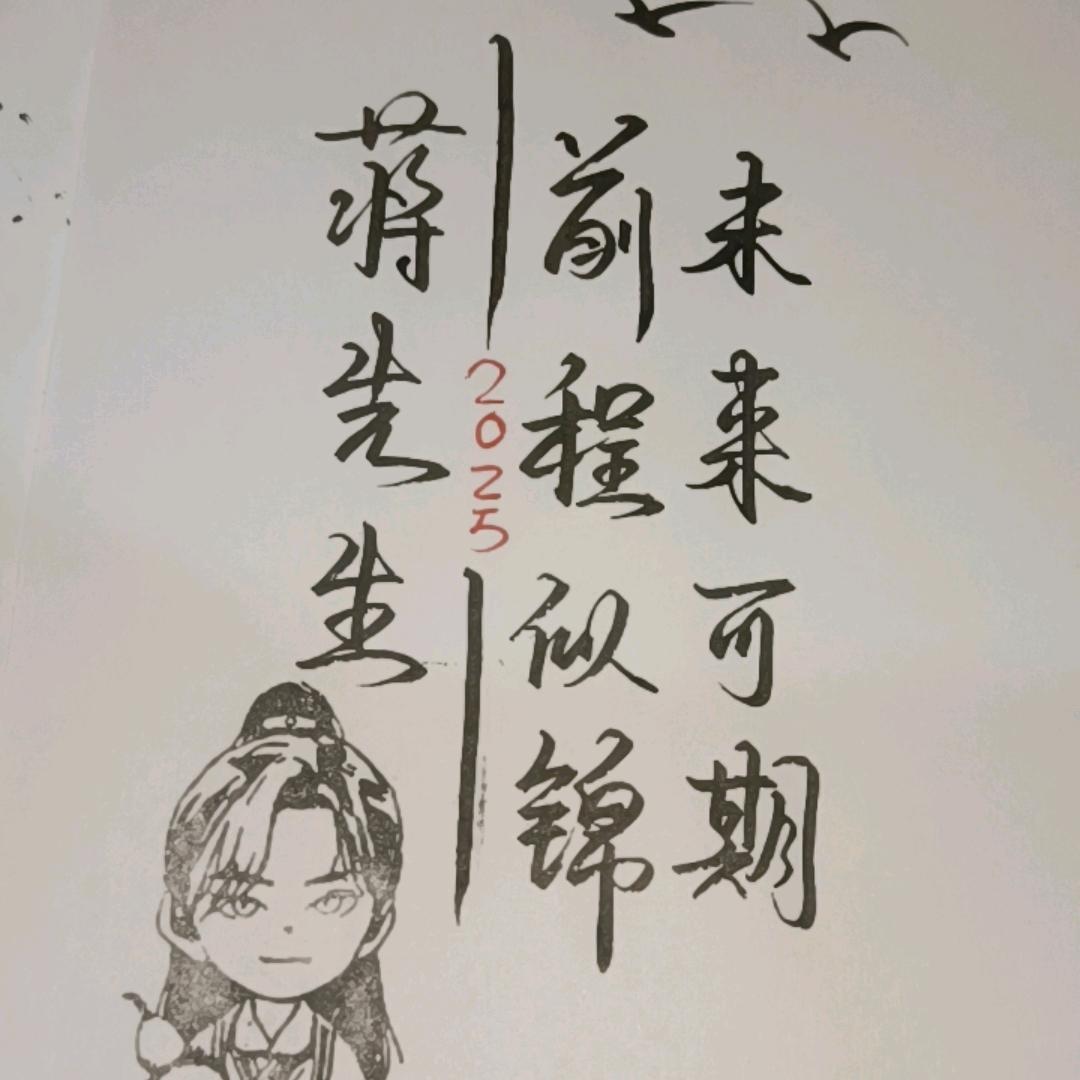 未来可期
前程似锦
2025
蒋先生